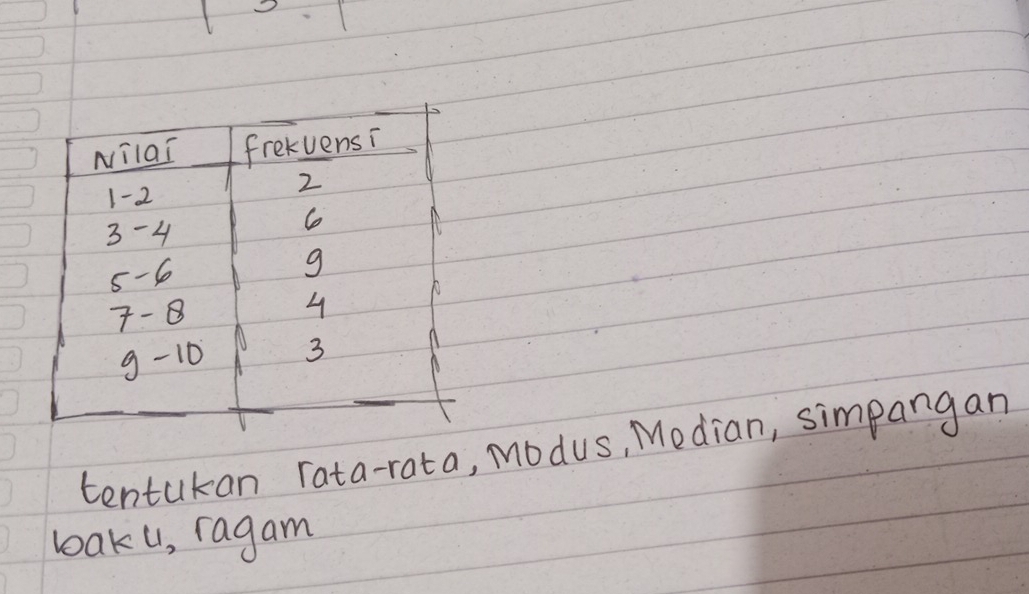 Nilai frekuensi
1-2 2
3-4 6
5-6 9
7-8 4
9-10 3
tentukan rata-rata, Modus, Median, simpangan
baku, ragam